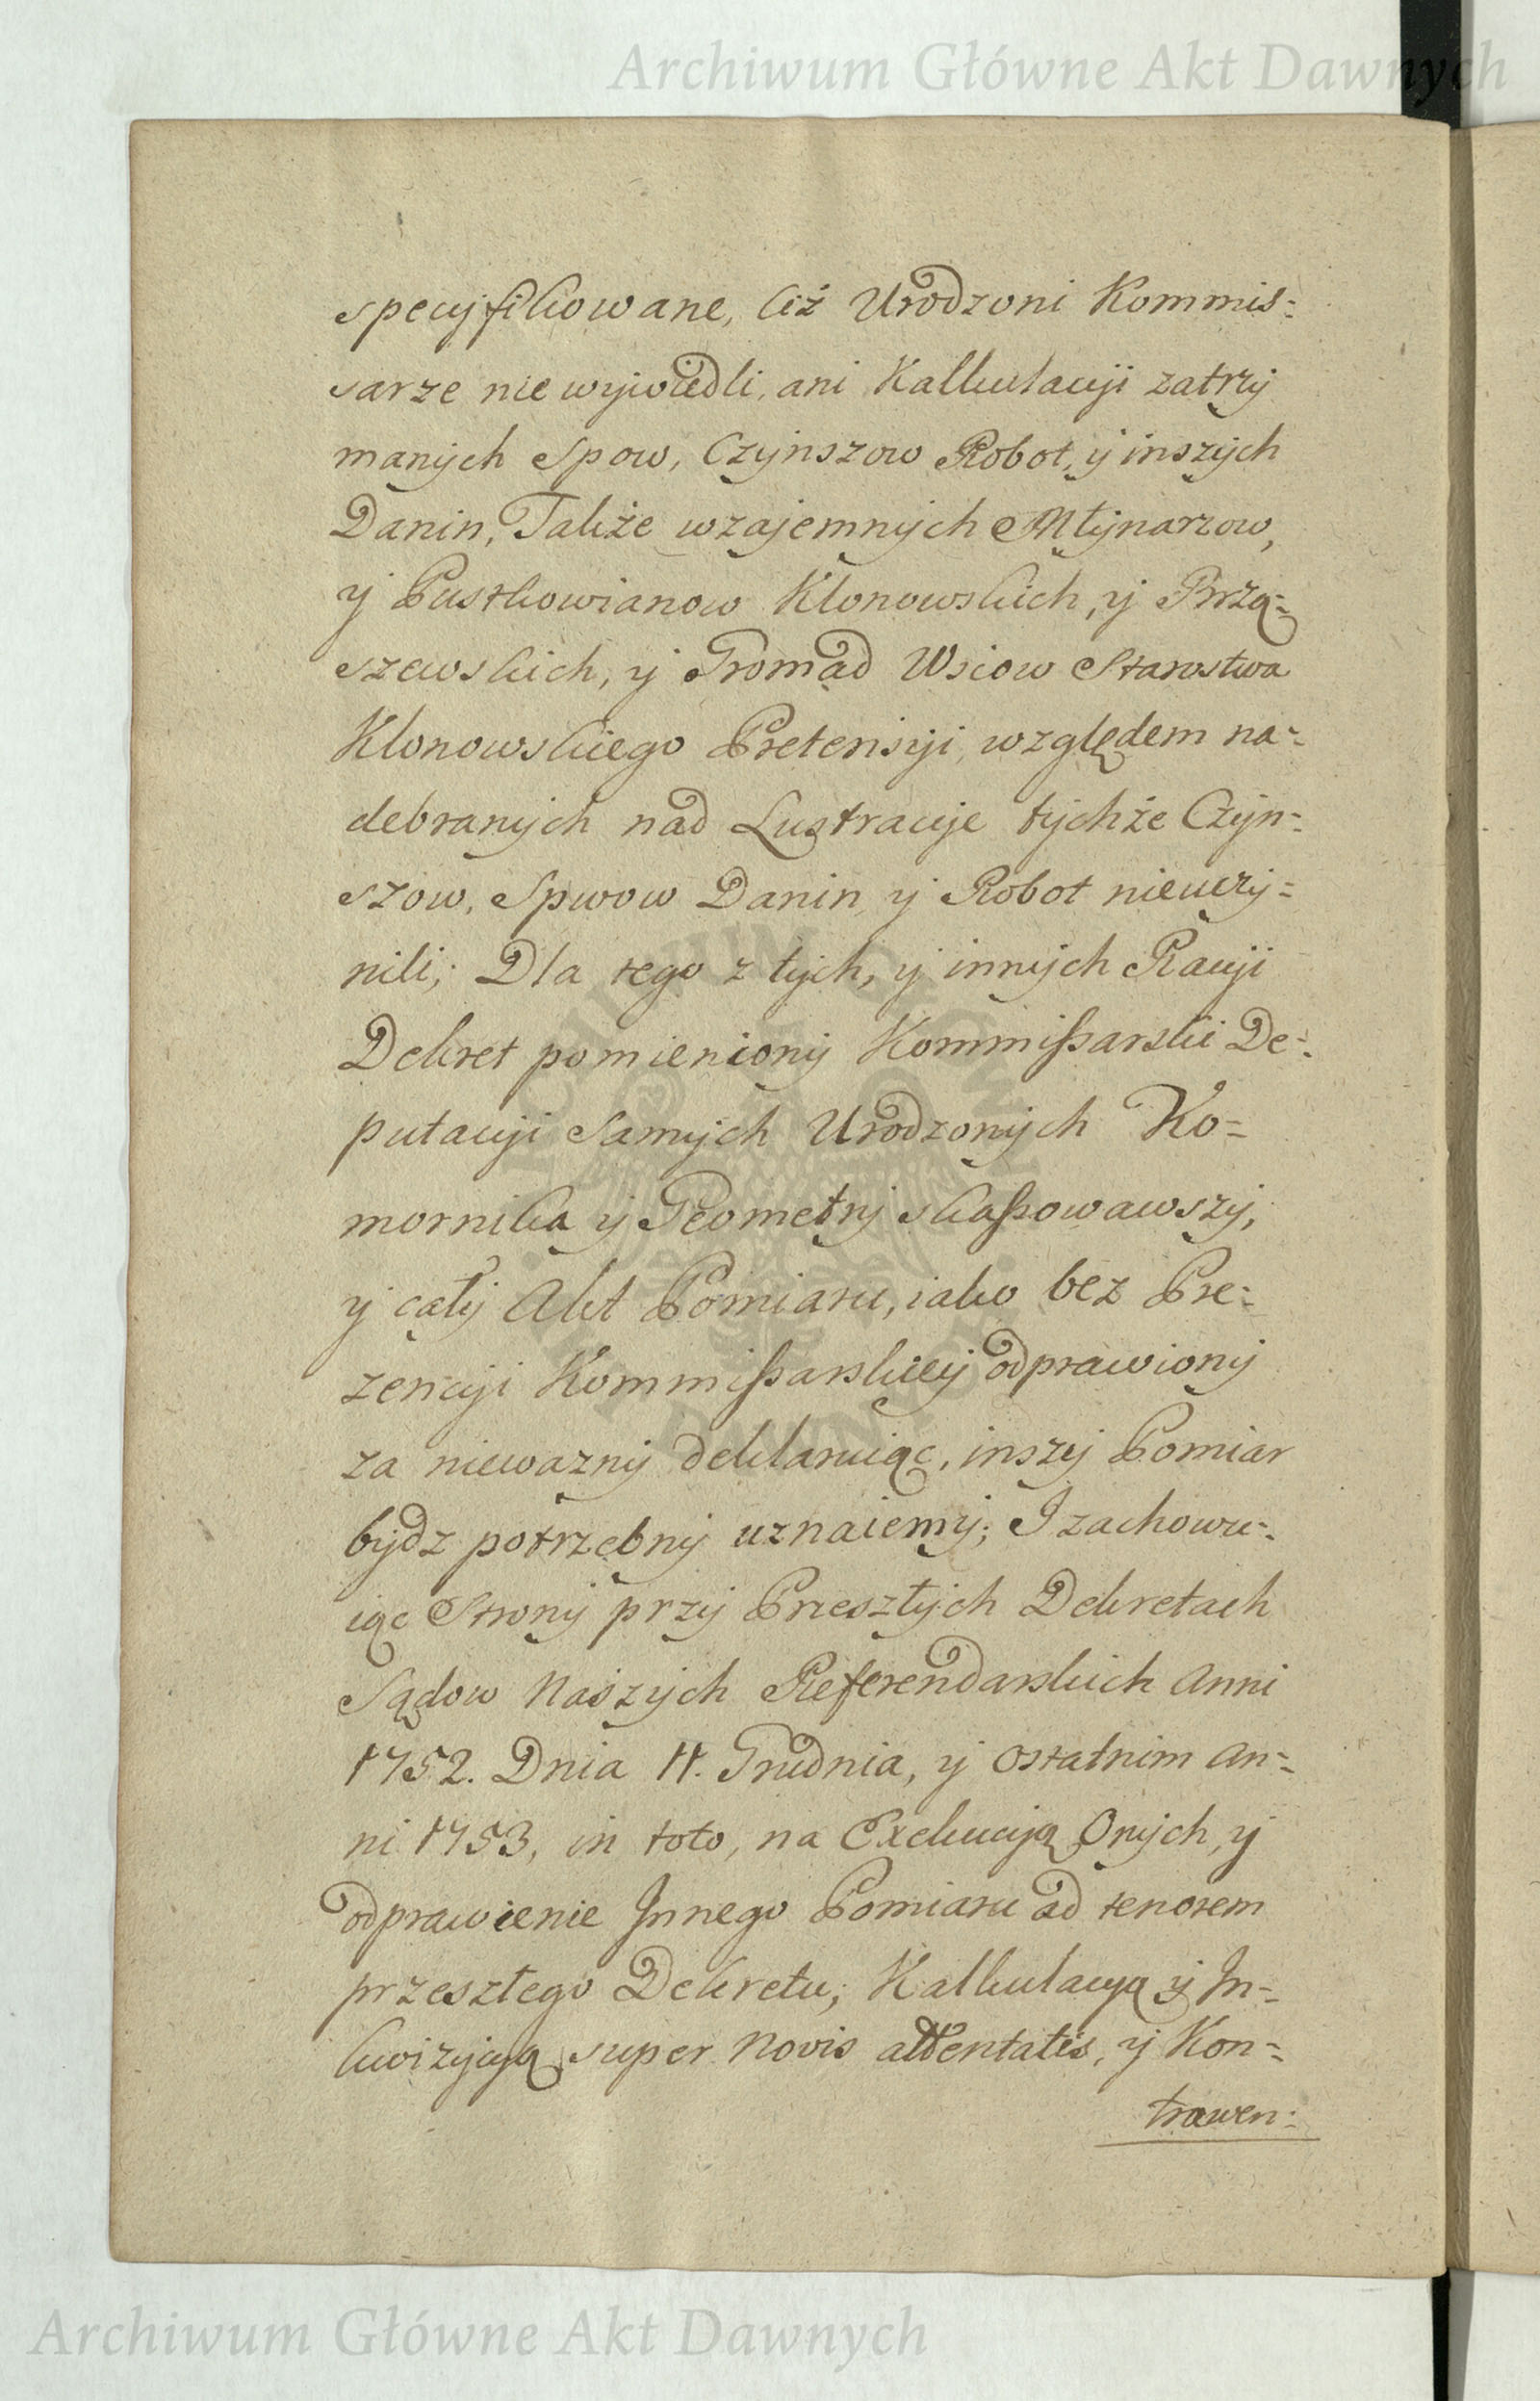 Archiwum Główne Akt Dawnych
specyfikowane, Ciż Urodzoni Kommis=
sarze nie wywiedli, ani Kalkulacyi zatrzy
manych Spow, Czynszow Robot, y inszych
Danin, Także wzajemnych Młynarzow,
y Pustkowianow Klonowskich, y Prżą=
szewskich, y Gromad Wsiow Starostwa
Klonowskiego Pretensyi, względem na=
debranych nad Lustracye tychże Czyn=
szow, Spwow Danin, y Robot nieuczy=
nili; Dla tego z tych, y innych Racyi
Dekret pomieniony Kommissarski De=
putacyi samych Urodzonych Ko=
mornika y Geometry skassowawszy,
y cały Akt Pomiaru, iako bez Pre=
zencyi Kommissarskiey odprawiony
za niewazny deklaruiąc, inszy Pomiar
bydz potrzebny uznaiemy; I zachowu=
iąc Strony przy Przeszłych Dekretach
Sądow Naszych Referendarskich Anni
1752. Dnia 11. Grudnia, y ostatnim An=
ni 1753, in toto, na Exekucyą Onych, y
odprawienie Innego Pomiaru ad tenorem
przeszłego Dekretu; Kalkulacyą y In=
kwizycyą super Novis attentatis, y Kon=
trawen=
Archiwum Główne Akt Dawnych